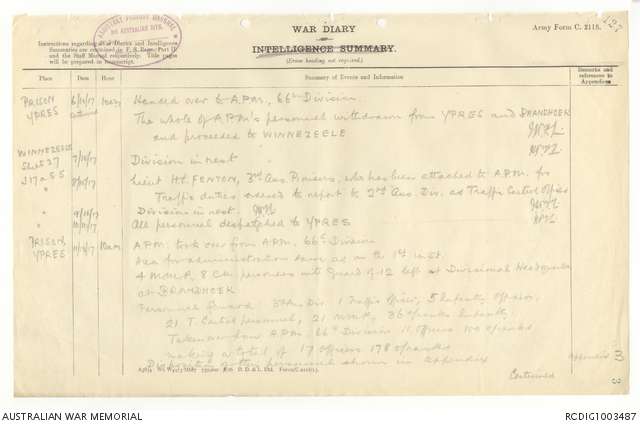 WAR DIARY
INTELLIGENCE SUMMARY.
(Erase heading not required).
Army Form C. 2118.
Instructions regarding War Diaries and Intelligence
Summaries are contained in F. S. Regs., Part II.
and the Staff Manual respectively. Title pages
will be prepared in manuscript.
ASSISTANT PROVOST MARSHAL
3rd AUSTRALIAN DIVN.
Place Date Hour Summary of Events and Information Remarks and references to Appendices
PRISON YPRES 6/10/17 Handed over to A.P.M., 66th Division.
The whole of A.P.M's personnel withdrawn from YPRES and BRANDHOEK
and proceeded to WINNEZEELE
WINNEZEELE
Sheet 27 7/10/17 Division in rest
J.17.a.5.5 8/10/17 Lieut H.L. FENTON, 3rd Aus. Pioneers, who has been attached to A.P.M. for
Traffic duties ordered to report to 2nd Aus. Div. as Traffic Control Officer
" 9/10/17 Division in rest.
" 10/10/17 All personnel despatched to YPRES
PRISON, YPRES 11/10/17 10am A.P.M. took over from A.P.M. 66th Division
Area for administration same as on the 1st inst.
4 M.M.P., 8 prisoners with Guard of 12 left at Divisional Headquarters
at BRANDHOEK
Personnel 3rd Aus. Div. 1 Traffic Officer, 5 Infantry Officers,
21 T. Control personnel, 21 M.M.P., 36 o/ranks Infantry
Taken over from A.P.M. 66th Division 11 officers 100 o/ranks
making a total of 17 officers 178 o/ranks
Disposition of the personnel shown in appendix
appendix 3
3
Continued
AUSTRALIAN WAR MEMORIAL
RCDIG1003487